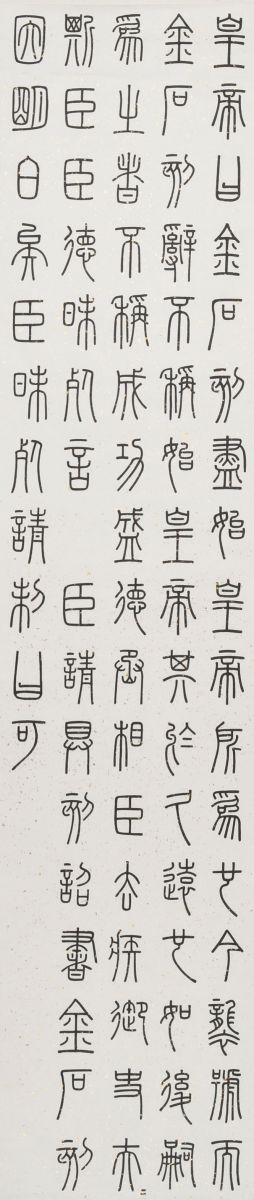 皇帝曰金石刻盡始皇帝所為也今襲號而
金石刻辭不稱始皇帝其於久遠也如後嗣
為之者不稱成功盛德丞相臣去疾御史夫
斯臣臣德昧死言 臣請具刻詔書金石刻
因明白矣臣昧死請制曰可